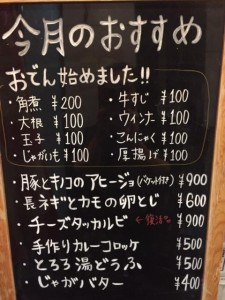 今月のおすすめ
おでん始めました!!
・角煮 ¥200 ・牛すじ ¥100
・大根 ¥100 ・ウィンナー ¥100
・玉子 ¥100 ・こんにゃく ¥100
・じゃがいも ¥100 ・厚揚げ ¥100
・豚とキノコのアヒージョ(バケット付き) ¥900
・長ネギとカモの卵とじ ¥600
・チーズタッカルビ ←復活 ¥900
・手作りカレーコロッケ ¥500
・とろろ湯どうふ ¥500
・じゃがバター ¥400